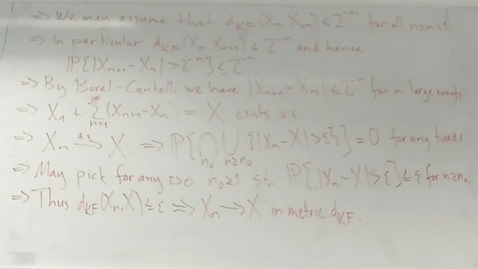 ⇒ We may assume that d_KF(X_n, X_m) ≤ 2^-n for all n≤m
⇒ In particular d_KF(X_n, X_n+1) ≤ 2^-n and hence
P{|X_n+1 - X_n| > 2^-n} ≤ 2^-n
⇒ By Borel-Cantelli we have |X_n+1 - X_n| ≤ 2^-n for n large enough
⇒ X_1 + ∑_{n=1}^∞ (X_n+1 - X_n) = X exists as
⇒ X_n →^{a.s} X ⇒ P{⋂_{n_0} ⋃_{n≥n_0} {|X_n - X| > ε}} = 0 for any fixed ε
⇒ May pick for any ε>0 n_0≥1 st. P{|X_n - X| > ε} ≤ ε for n≥n_0
⇒ Thus d_KF(X_n, X) ≤ ε ⇒ X_n → X in metric d_KF.